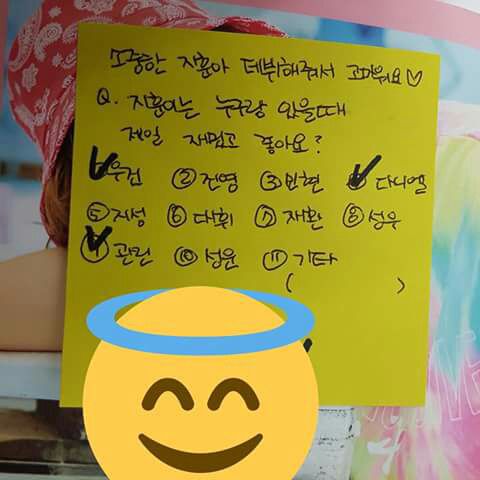 소중한 지훈아 데뷔해줘서 고마워요♡
Q. 지훈이는 누구랑 있을때
제일 재밌고 좋아요?
✓우진 ②진영 ③민현 ✓다니엘
⑤지성 ⑥대휘 ⑦재환 ⑧성우
✓관린 ⑩성운 ⑪기타
( )